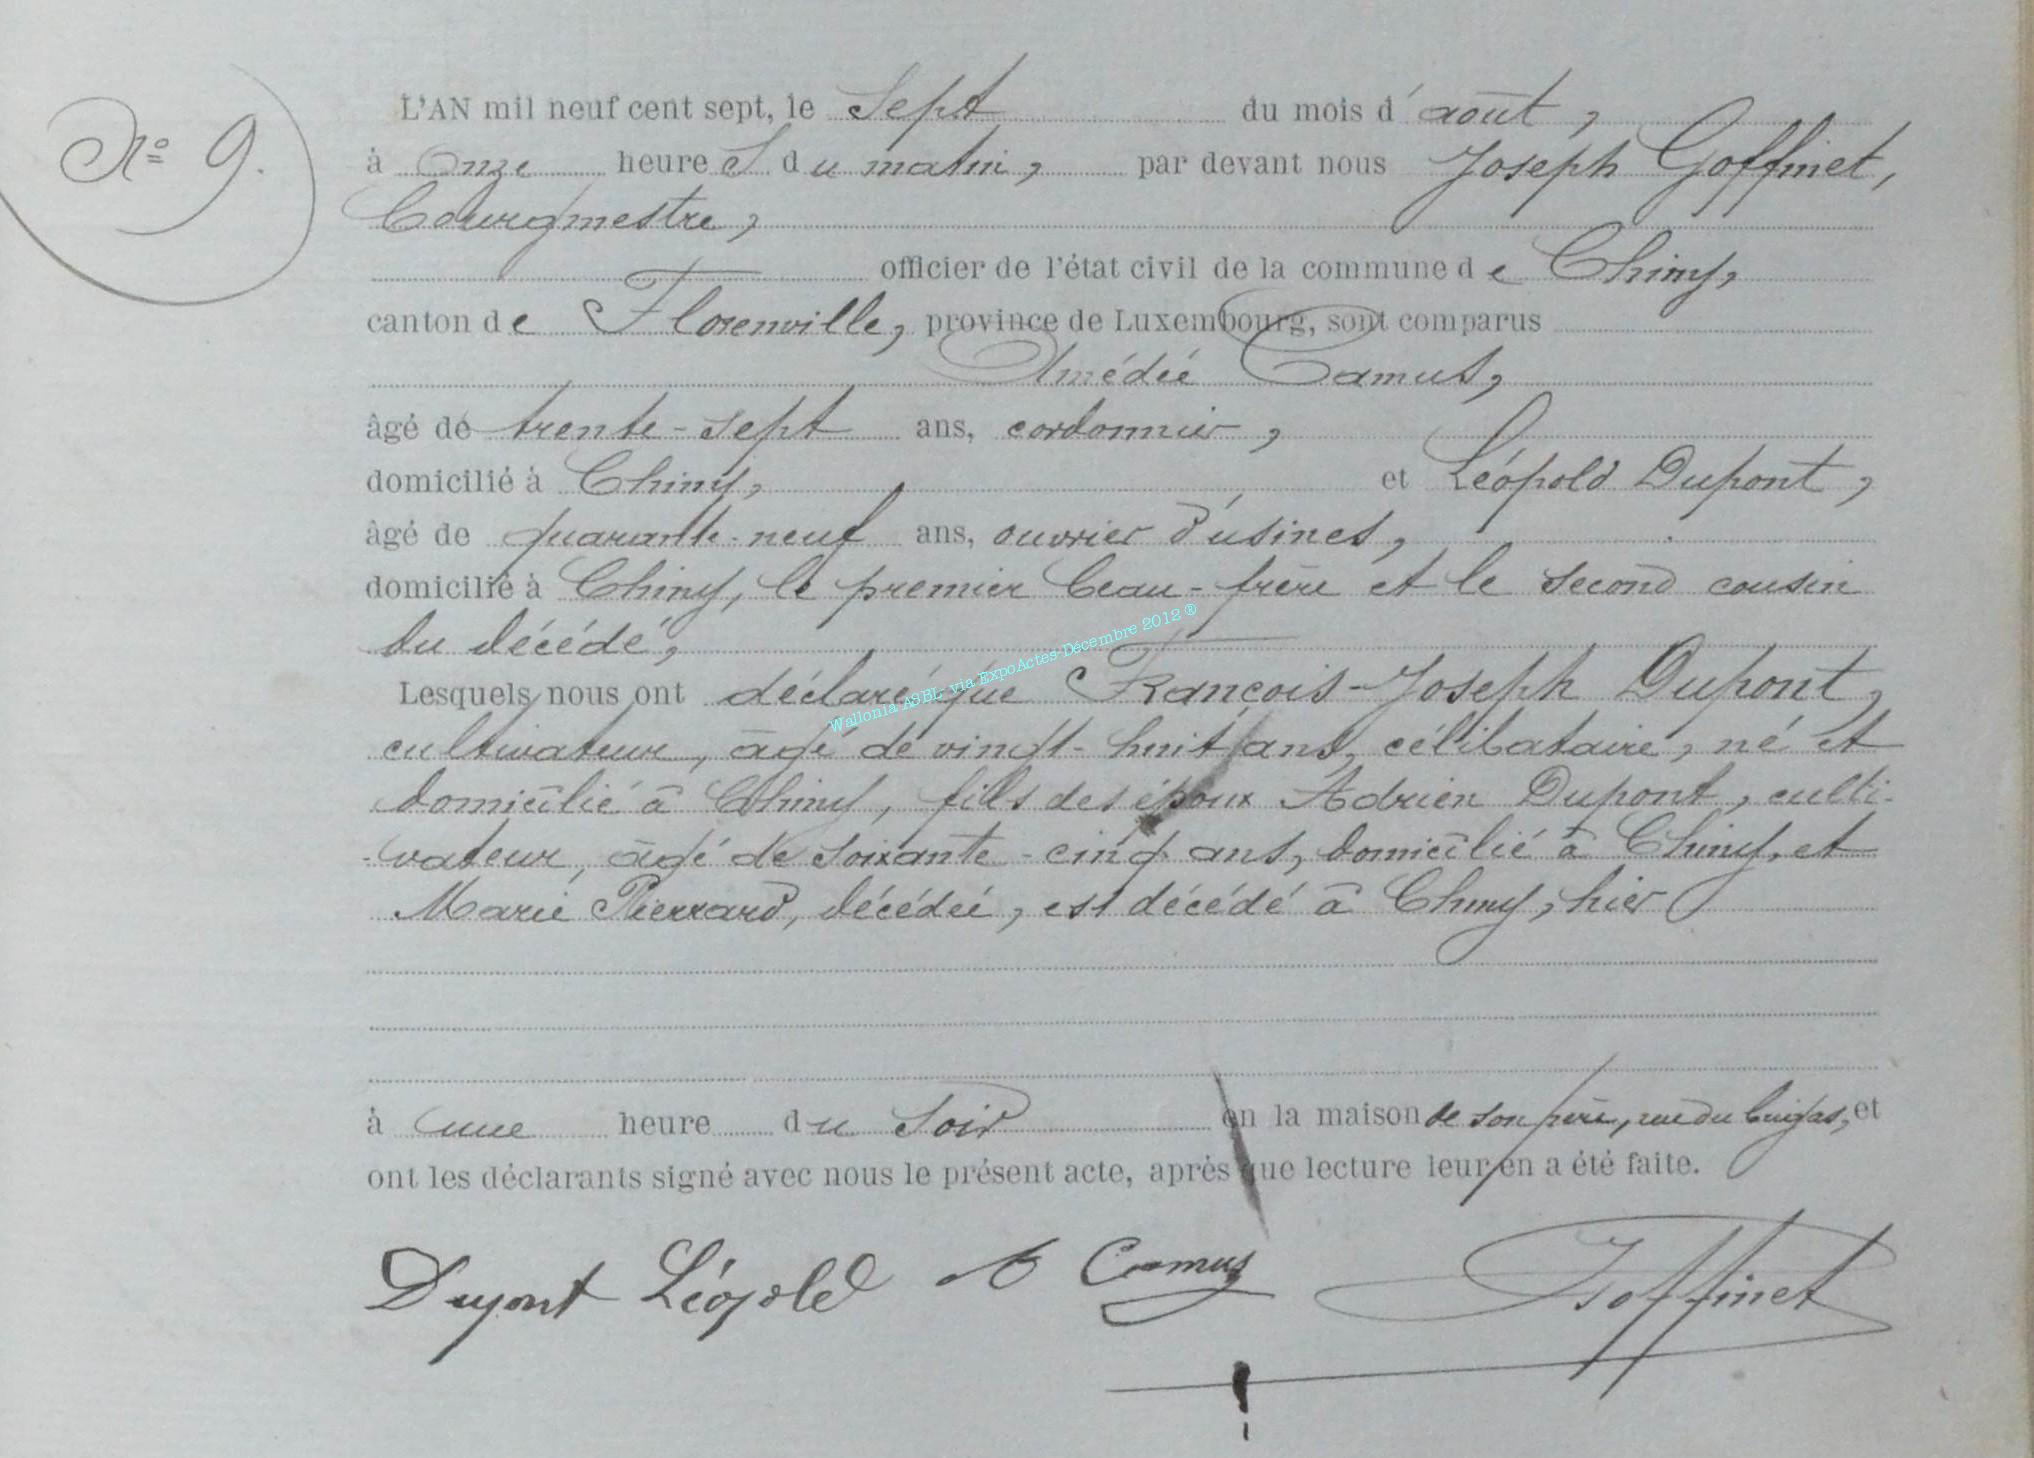 N° 9.
L'AN mil neuf cent sept, le sept du mois d'août,
à onze heures du matin, par devant nous Joseph Goffinet,
bourgmestre,
officier de l'état civil de la commune de Chiny,
canton de Florenville, province de Luxembourg, sont comparus
Amédée Camus,
âgé de trente-sept ans, cordonnier,
domicilié à Chiny, et Léopold Dupont,
âgé de quarante-neuf ans, ouvrier d'usines,
domicilié à Chiny, le premier beau-frère et le second cousin
du décédé,
Lesquels nous ont déclaré que François-Joseph Dupont,
cultivateur, âgé de vingt-huit ans, célibataire, né et
domicilié à Chiny, fils des époux Adrien Dupont, culti-
-vateur, âgé de soixante-cinq ans, domicilié à Chiny, et
Marie Pierrard, décédée, est décédé à Chiny, hier
à une heure du soir en la maison de son père, rue du et
ont les déclarants signé avec nous le présent acte, après que lecture leur en a été faite.
Dupont Léopold Camus Goffinet
Wallonia ASBL via ExpoActes-Décembre 2012 ®